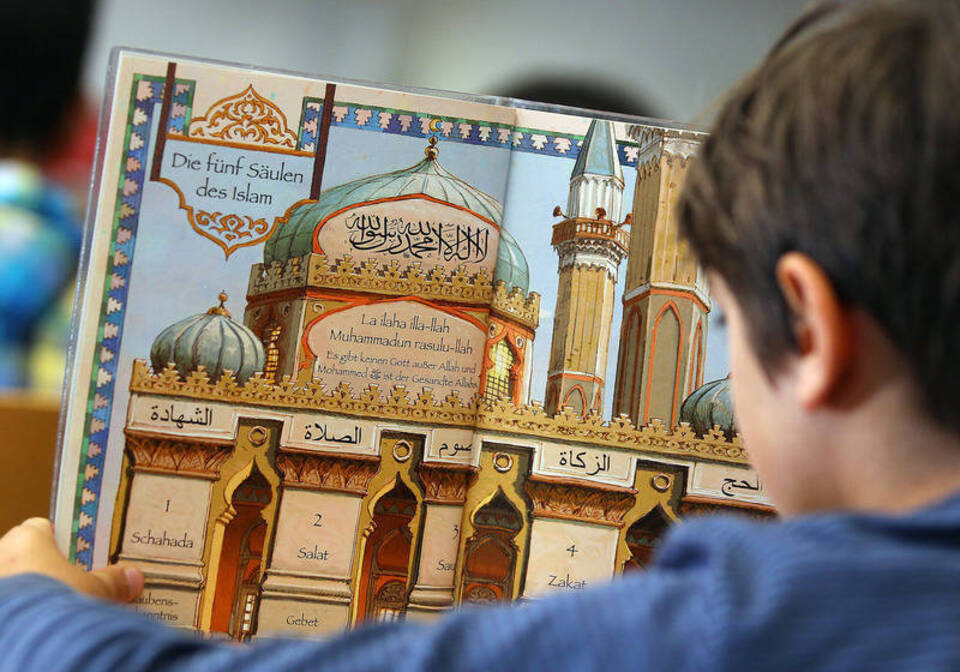 Die fünf Säulen
des Islam
لا اله الا الله محمد رسول الله
La ilaha illa-llah
Muhammadun rasulu-llah
Es gibt keinen Gott außer Allah und
Mohammed ﷺ ist der Gesandte Allahs
الشهادة
الصلاة
صوم
الزكاة
الحج
1
Schahada
2
Salat
Gebet
3
4
Zakat